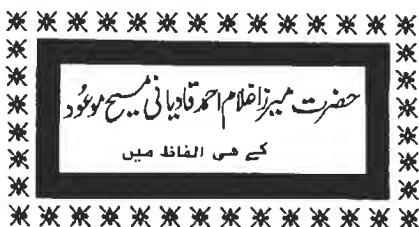 حضرت میرزا غلام احمد قادیانی مسیح موعُود
کے ھی الفاظ میں